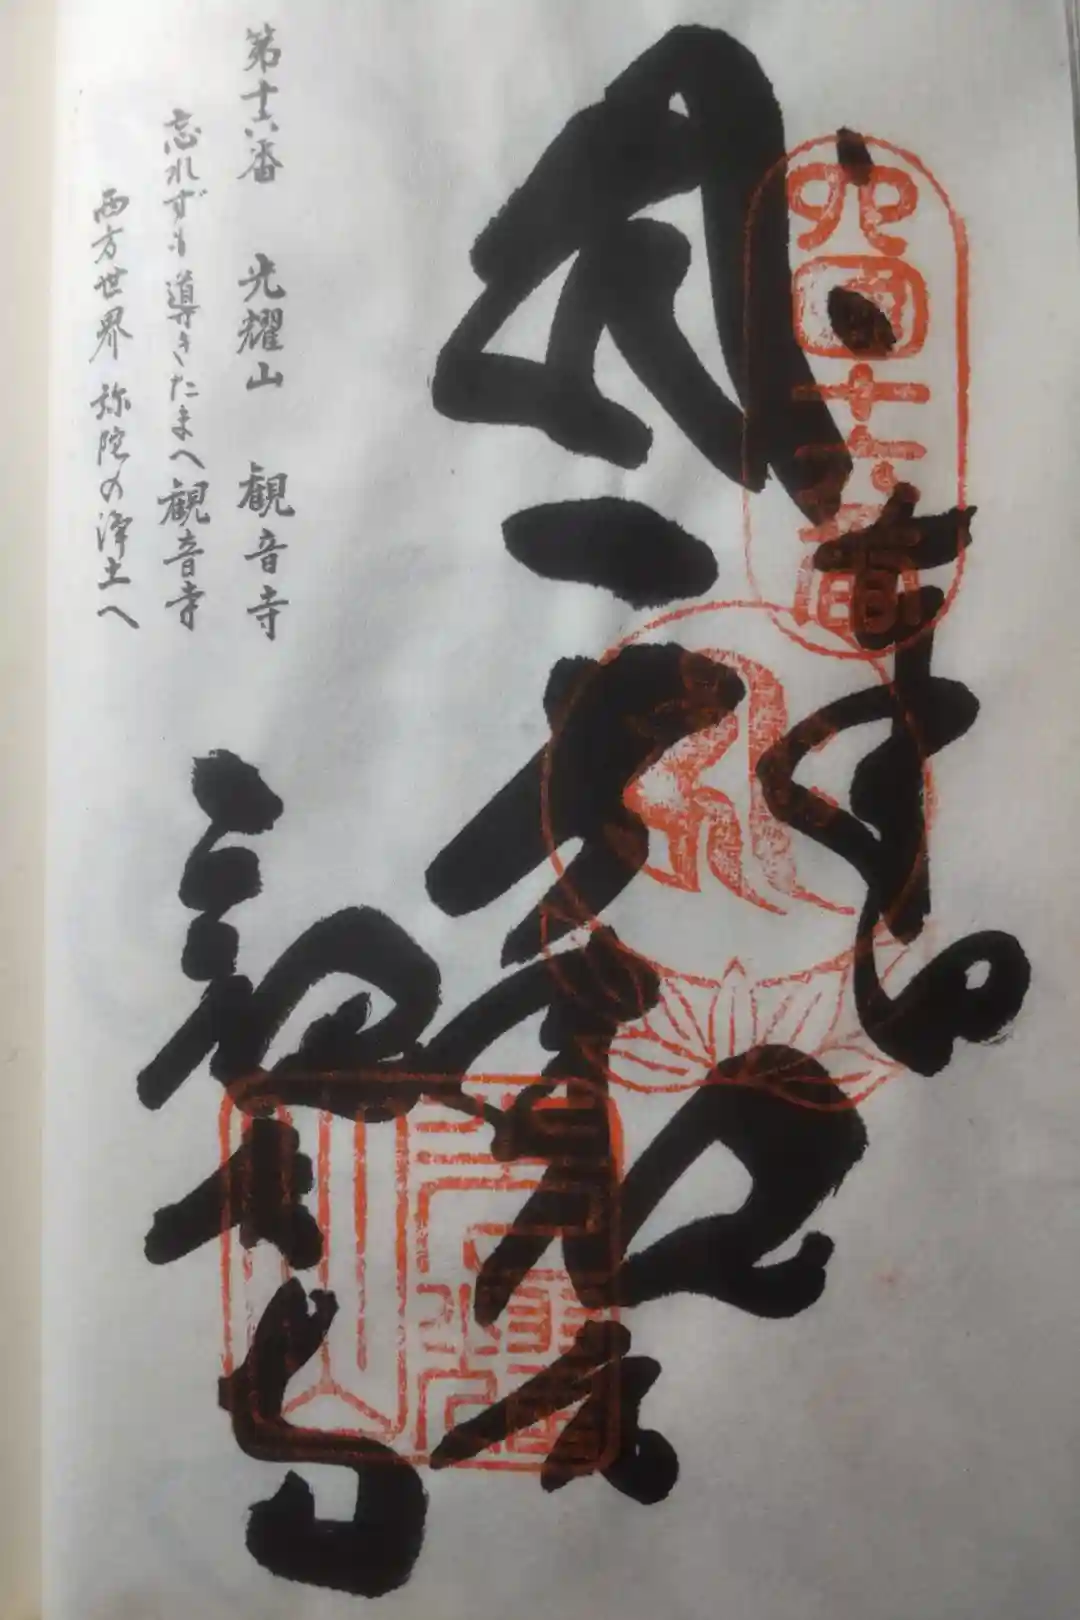 四国十六番
奉納
観音寺
光耀山
第十六番 光耀山 観音寺
忘れずも導きたまへ観音寺
西方世界 弥陀の浄土へ